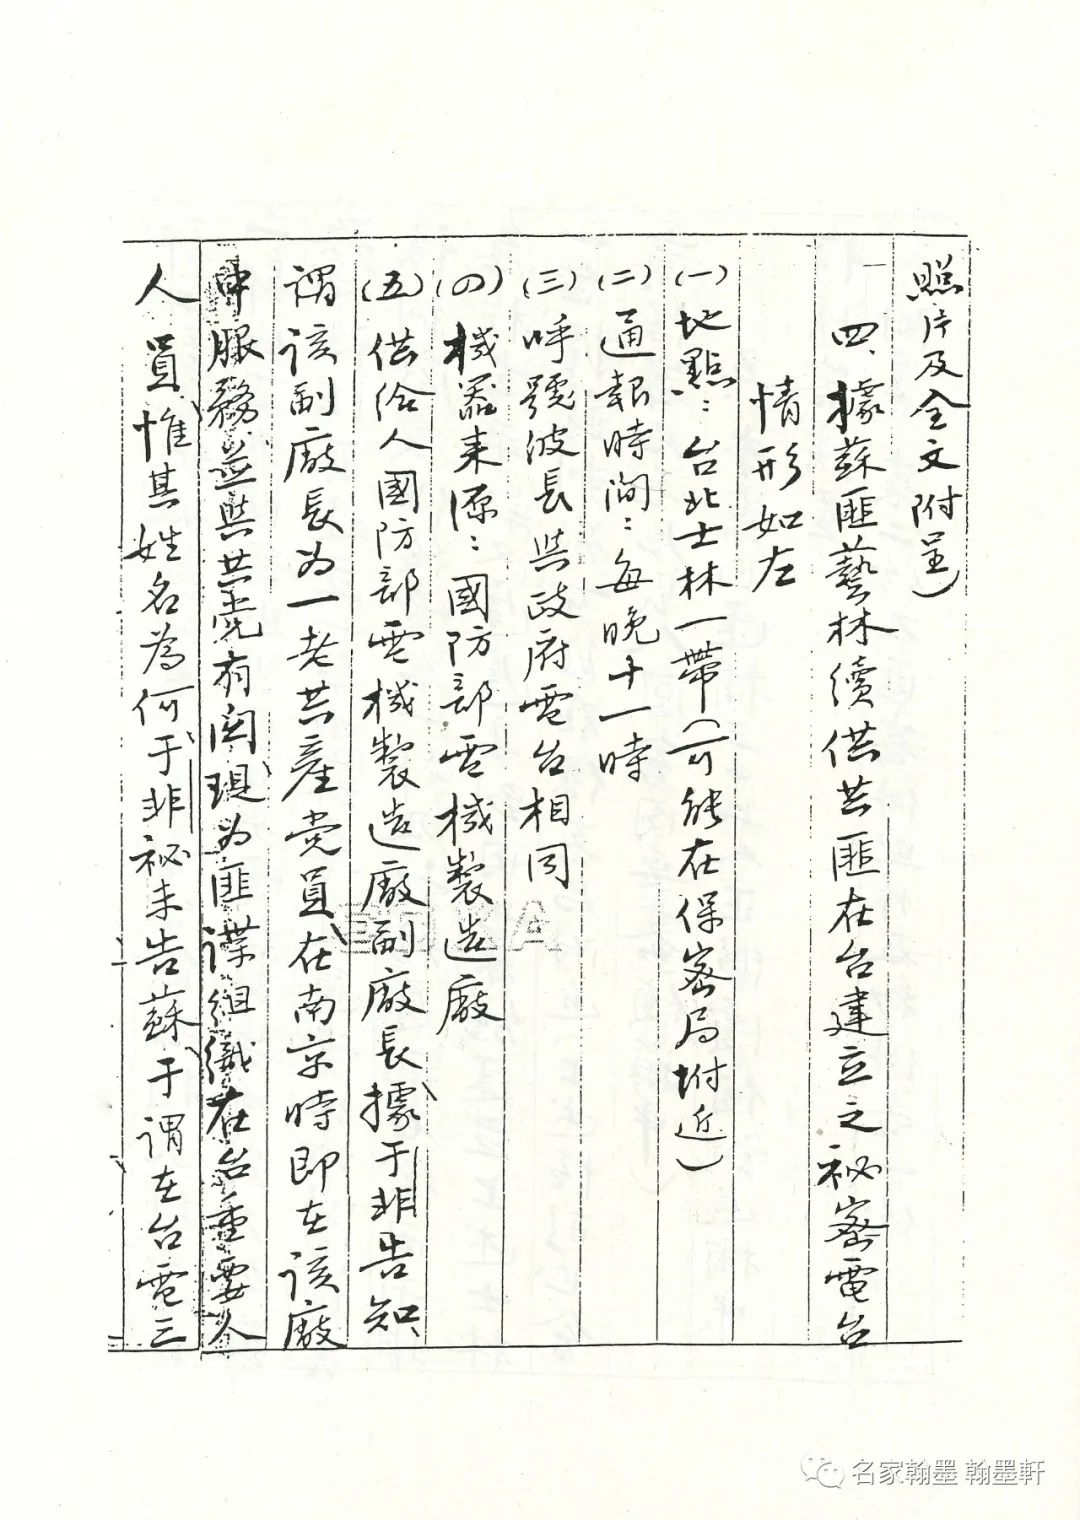 照片及全文附呈）
四、據蘇匪藝林續供共匪在台建立之祕密電台
情形如左
(一)地點：台北士林一帶（可能在保密局附近）
(二)通報時間：每晚十一時
(三)呼號波長與政府電台相同
(四)機器来源：國防部電機製造廠
(五)供給人國防部電機製造廠副廠長據于非告知、
謂該副廠長为一老共產党員在南京時即在該廠
中服務並與共党有関現为匪諜組織在台重要人
人員惟其姓名為何于非祕未告蘇于謂在台電三
名家翰墨 翰墨軒